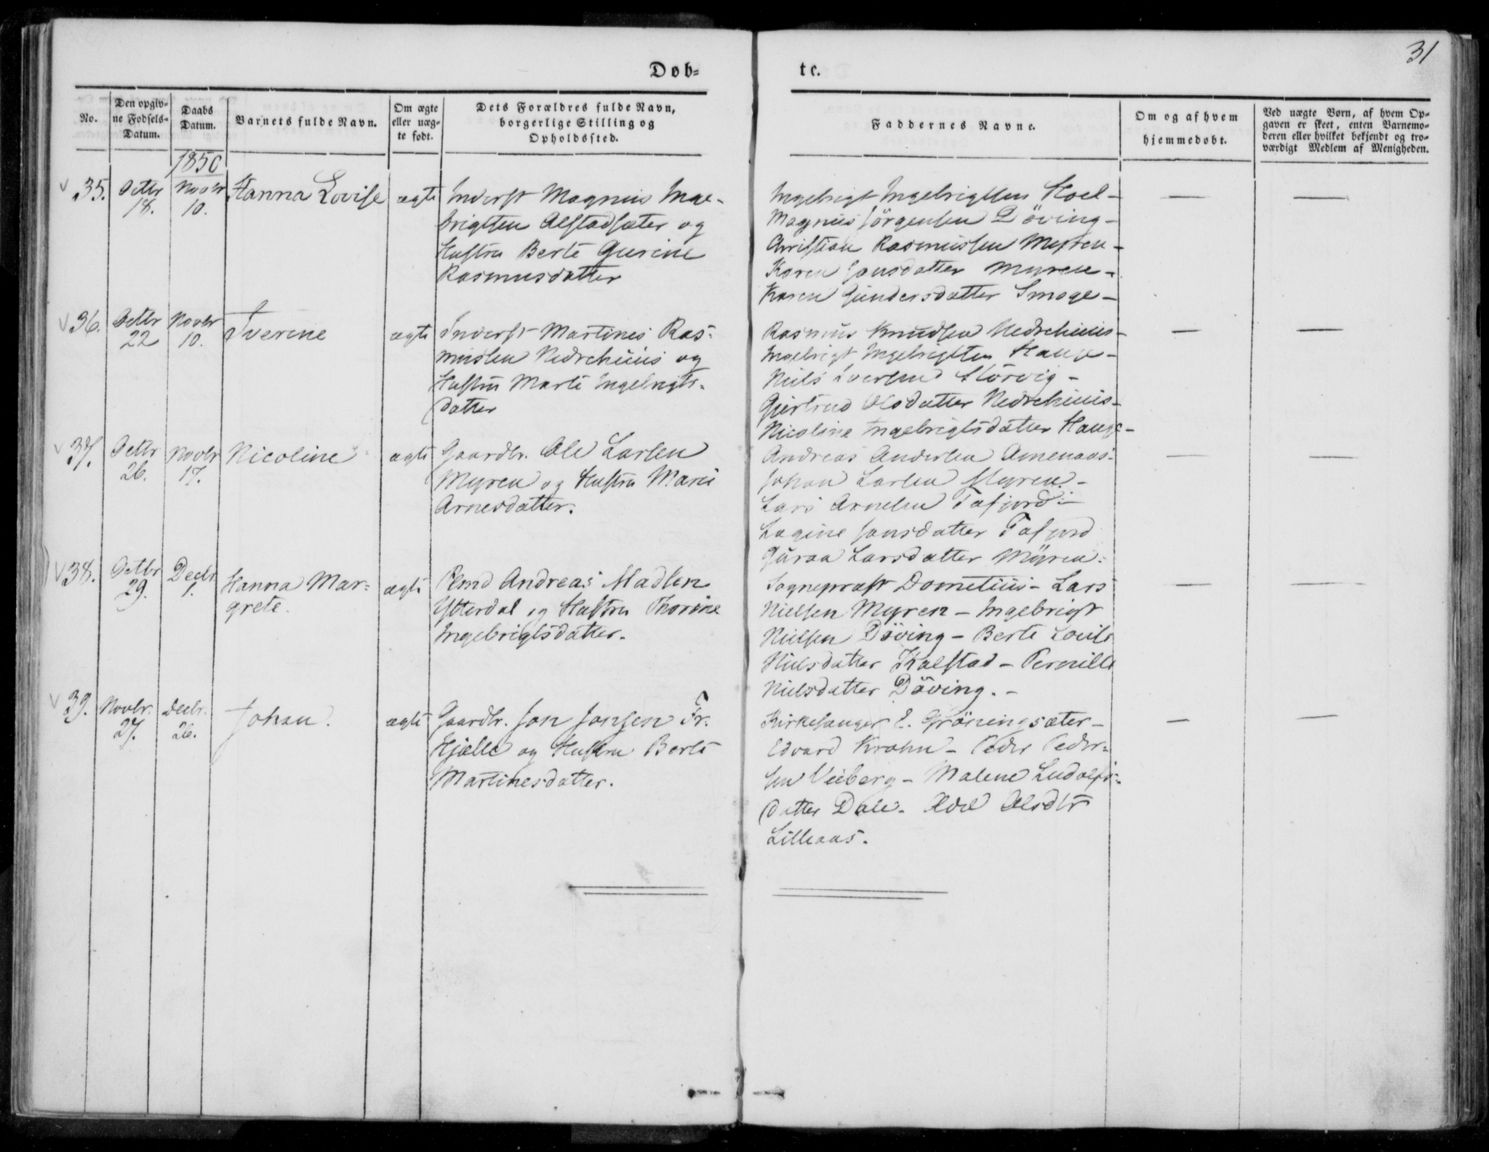 31
Døb= te.
No.
Den opgiv=
ne Fødsels=
Datum.
Daabs
Datum.
Barnets fulde Navn.
Om ægte
eller uæg=
te født.
Dets Forældres fulde Navn,
borgerlige Stilling og
Opholdssted.
Faddernes Navne.
Om og af hvem
hjemmedøbt.
Ved uægte Børn, af hvem Op=
gaven er skeet, enten Barnemo=
deren eller hvilket bekjendt og tro=
værdigt Medlem af Menigheden.
1850
35.
Octbr
18.
Novbr
10.
Hanna Lovise
ægte
Inderst Magnus Inge-
brigtsen Alstadsæter og
Hustru Berte Gurine
Rasmusdatter
Ingebrigt Ingebrigtsen Hoel -
Magnus Jörgensen Döving -
Christian Rasmussen Myren -
Karen Jonsdatter Myren -
Karen Gundersdatter Smoge -
36.
Octbr
22
Novbr
10.
Iverine
ægte
Inderst Martines Ras-
mussen Nedrehuus og
Hustru Marte Ingebrigts-
datter
Rasmus Knudsen Nedrehuus -
Ingebrigt Ingebrigtsen Hauge -
Niels Iversen Störvig -
Gjertrud Olsdatter Nedrehuus -
Nicolina Ingebrigtsdatter Hauge -
37.
Octbr
26.
Novbr
17.
Nicoline
ægte
Gaardbr. Ole Larsen
Myren og Hustru Marie
Arnesdatter.
Andreas Andersen
Johan Larsen Myren -
Lars Arnesen Tafjord -
Jonsdatter Tafjord
Guraa Larsdatter Myren.
38.
Octbr
29.
Decbr
1.
Hanna Mar=
grete.
ægte
Andreas Madsen
Ytterdal og Hustru Thorine
Ingebrigtsdatter.
Sogneprest Dometius - Lars
Nielsen Myren - Ingebrigt
Nielsen Döving - Berte Louise
Nielsdatter Kalstad - Pernille
Nielsdatter Döving. -
39.
Novbr.
27.
Decbr.
26.
Johan.
ægte
Gaardbr. Jon Jonsen Fr.
Hjelle og Hustru Berte
Martinesdatter.
Kirkesanger E. Gröningsæter -
Edvard Krohn - Peder Peder-
sen Uriberg - Malene Ludolfs-
datter Dale - Olsdtr
Lilleaas.